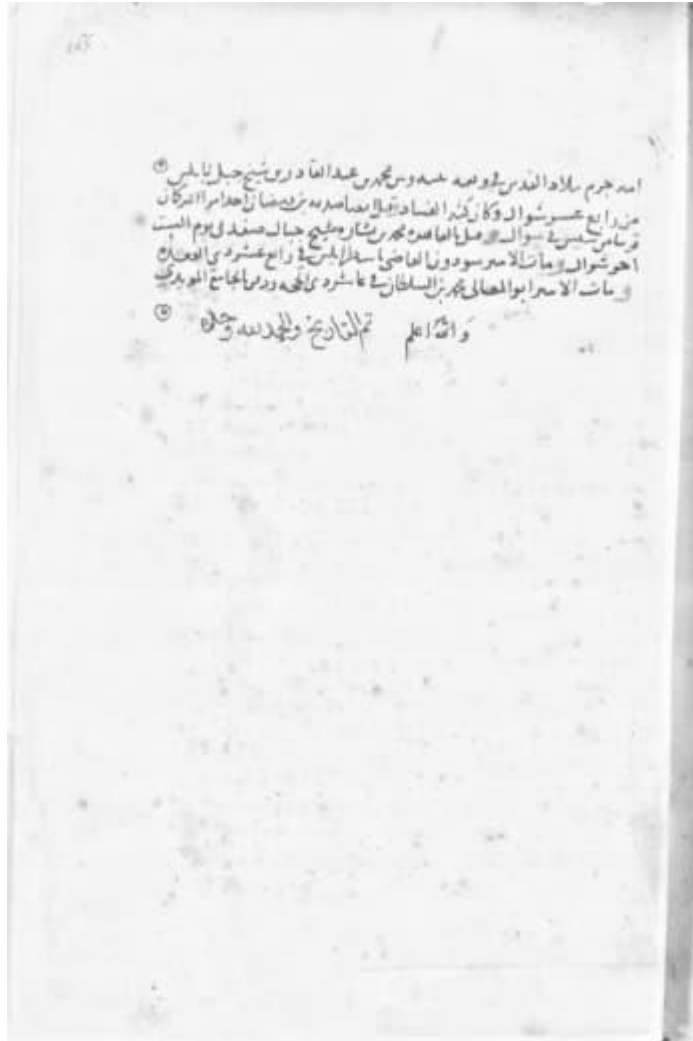 165
امير جرم ببلاد القدس في وقعة بينه وبين محمد بن عبد القادر بن شيخ جبل نابلس
من رابع عشر شوال وكان كثير الفساد وقتل ناصر الدين بن رمضان احد امرا التركمان
في شوال وقتل بالقاهرة محمد بن بشارة شيخ جبال صفد في يوم السبت
اخر شوال ومات الامير سودون القاضي نايب طرابلس في رابع عشر ذي القعدة
ومات الامير ابو المعالي محمد بن السلطان في عاشر ذي الحجة ودفن بالجامع المويدي
والله اعلم تم التاريخ والحمد لله وحده